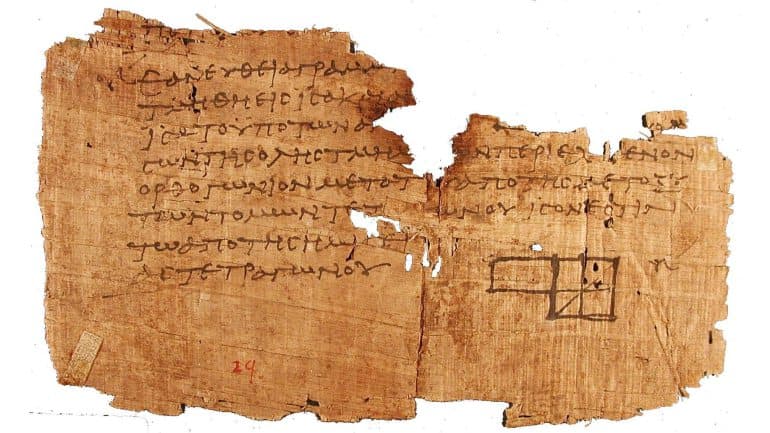 ΕΑΝΕΥΘΕΙΑΓΡΑΜΜ
ΤΜΗΘΗΕΙϹΙϹΑΚΑΙ
ΙϹΑΤΟΥΠΟΤΩΝΑ
ΤΩΝΤΗϹΟΛΗϹΤΜΗ ΝΠΕΡΙΕΧΟΜΕΝΟΝ
ΟΡΘΟΓΩΝΙΟΝΜΕΤΑΤΟΥ ΑΠΟΤΗϹΜΕΤΟΞΥ
ΤΩΝΤΟΜΩΝΤΕΤ ΩΝΟΥΙϹΟΝΕϹΤΙΝ
ΤΩΑΠΟΤΗϹΗΜΙϹΕΙ
ΑϹΤΕΤΡΑΓΩΝΟΥ
29